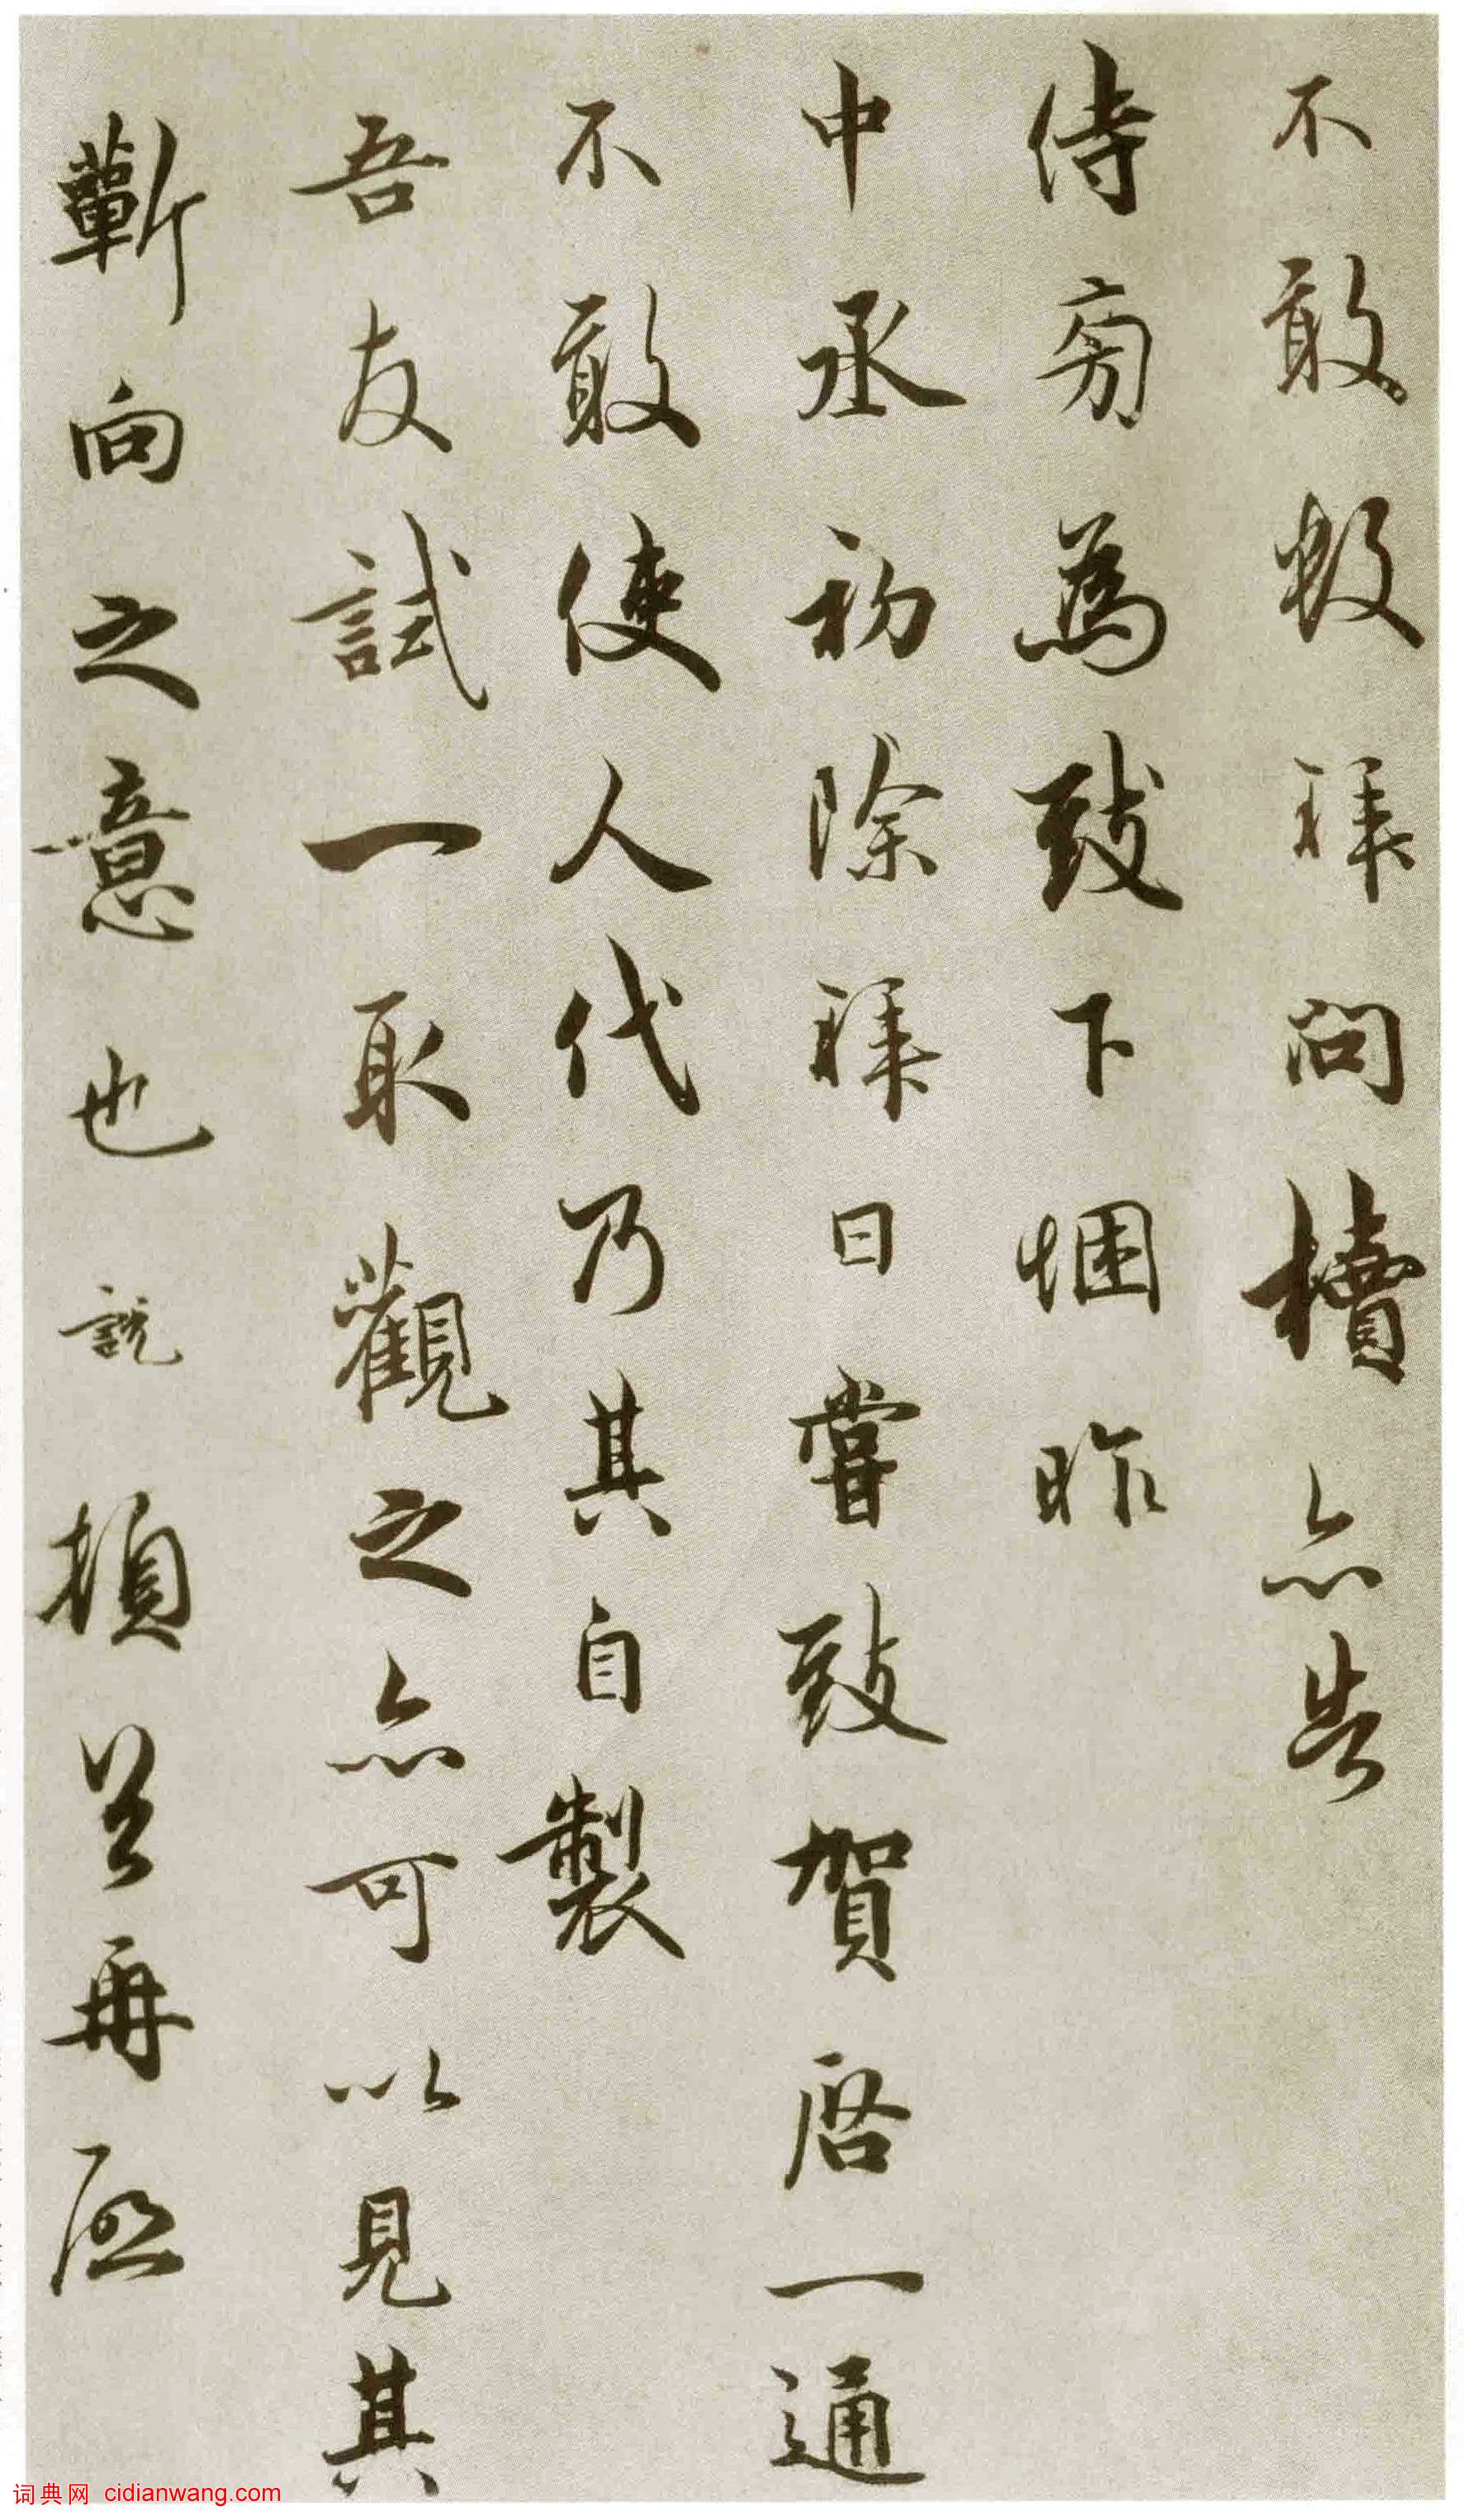 不敢數拜問櫝亦告
侍旁為致下悃昨
中丞初除拜日嘗致賀啓一通
不敢使人代乃其自製
吾友試一取觀之亦可以見其
蘄向之意也説頓首再啓
词典网 cidianwang.com